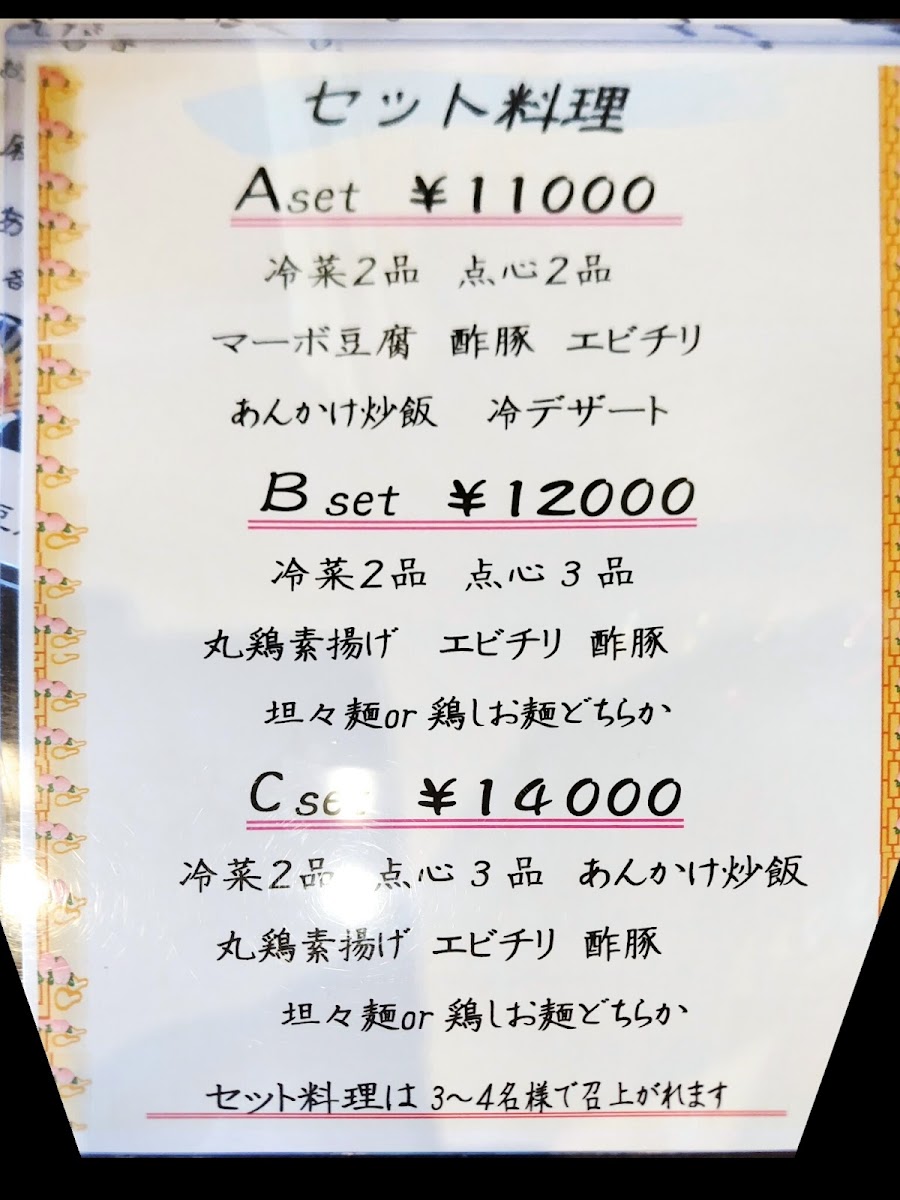 セット料理
Aset ¥11000
冷菜2品 点心2品
マーボ豆腐 酢豚 エビチリ
あんかけ炒飯 冷デザート
B set ¥12000
冷菜2品 点心3品
丸鶏素揚げ エビチリ 酢豚
坦々麺or鶏しお麺どちらか
C set ¥14000
冷菜2品 点心3品 あんかけ炒飯
丸鶏素揚げ エビチリ 酢豚
坦々麺or鶏しお麺どちらか
セット料理は3〜4名様で召上がれます